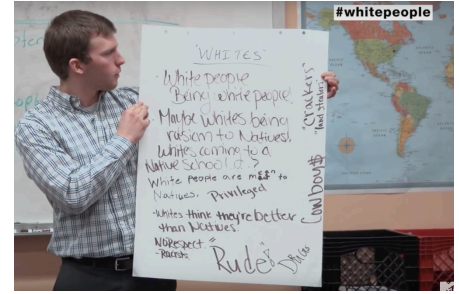 #whitepeople
"WHITES"
- White people
Being white people!
- Maybe whites being
rasism to Natives!
Whites coming to a
Native School :( ?
White people are m££n to
Natives. Privileged
- Whites think they're better
than Natives!
NO Respect
- Racists
Rude
"Crackers"
"land stealers"
Cowboy$